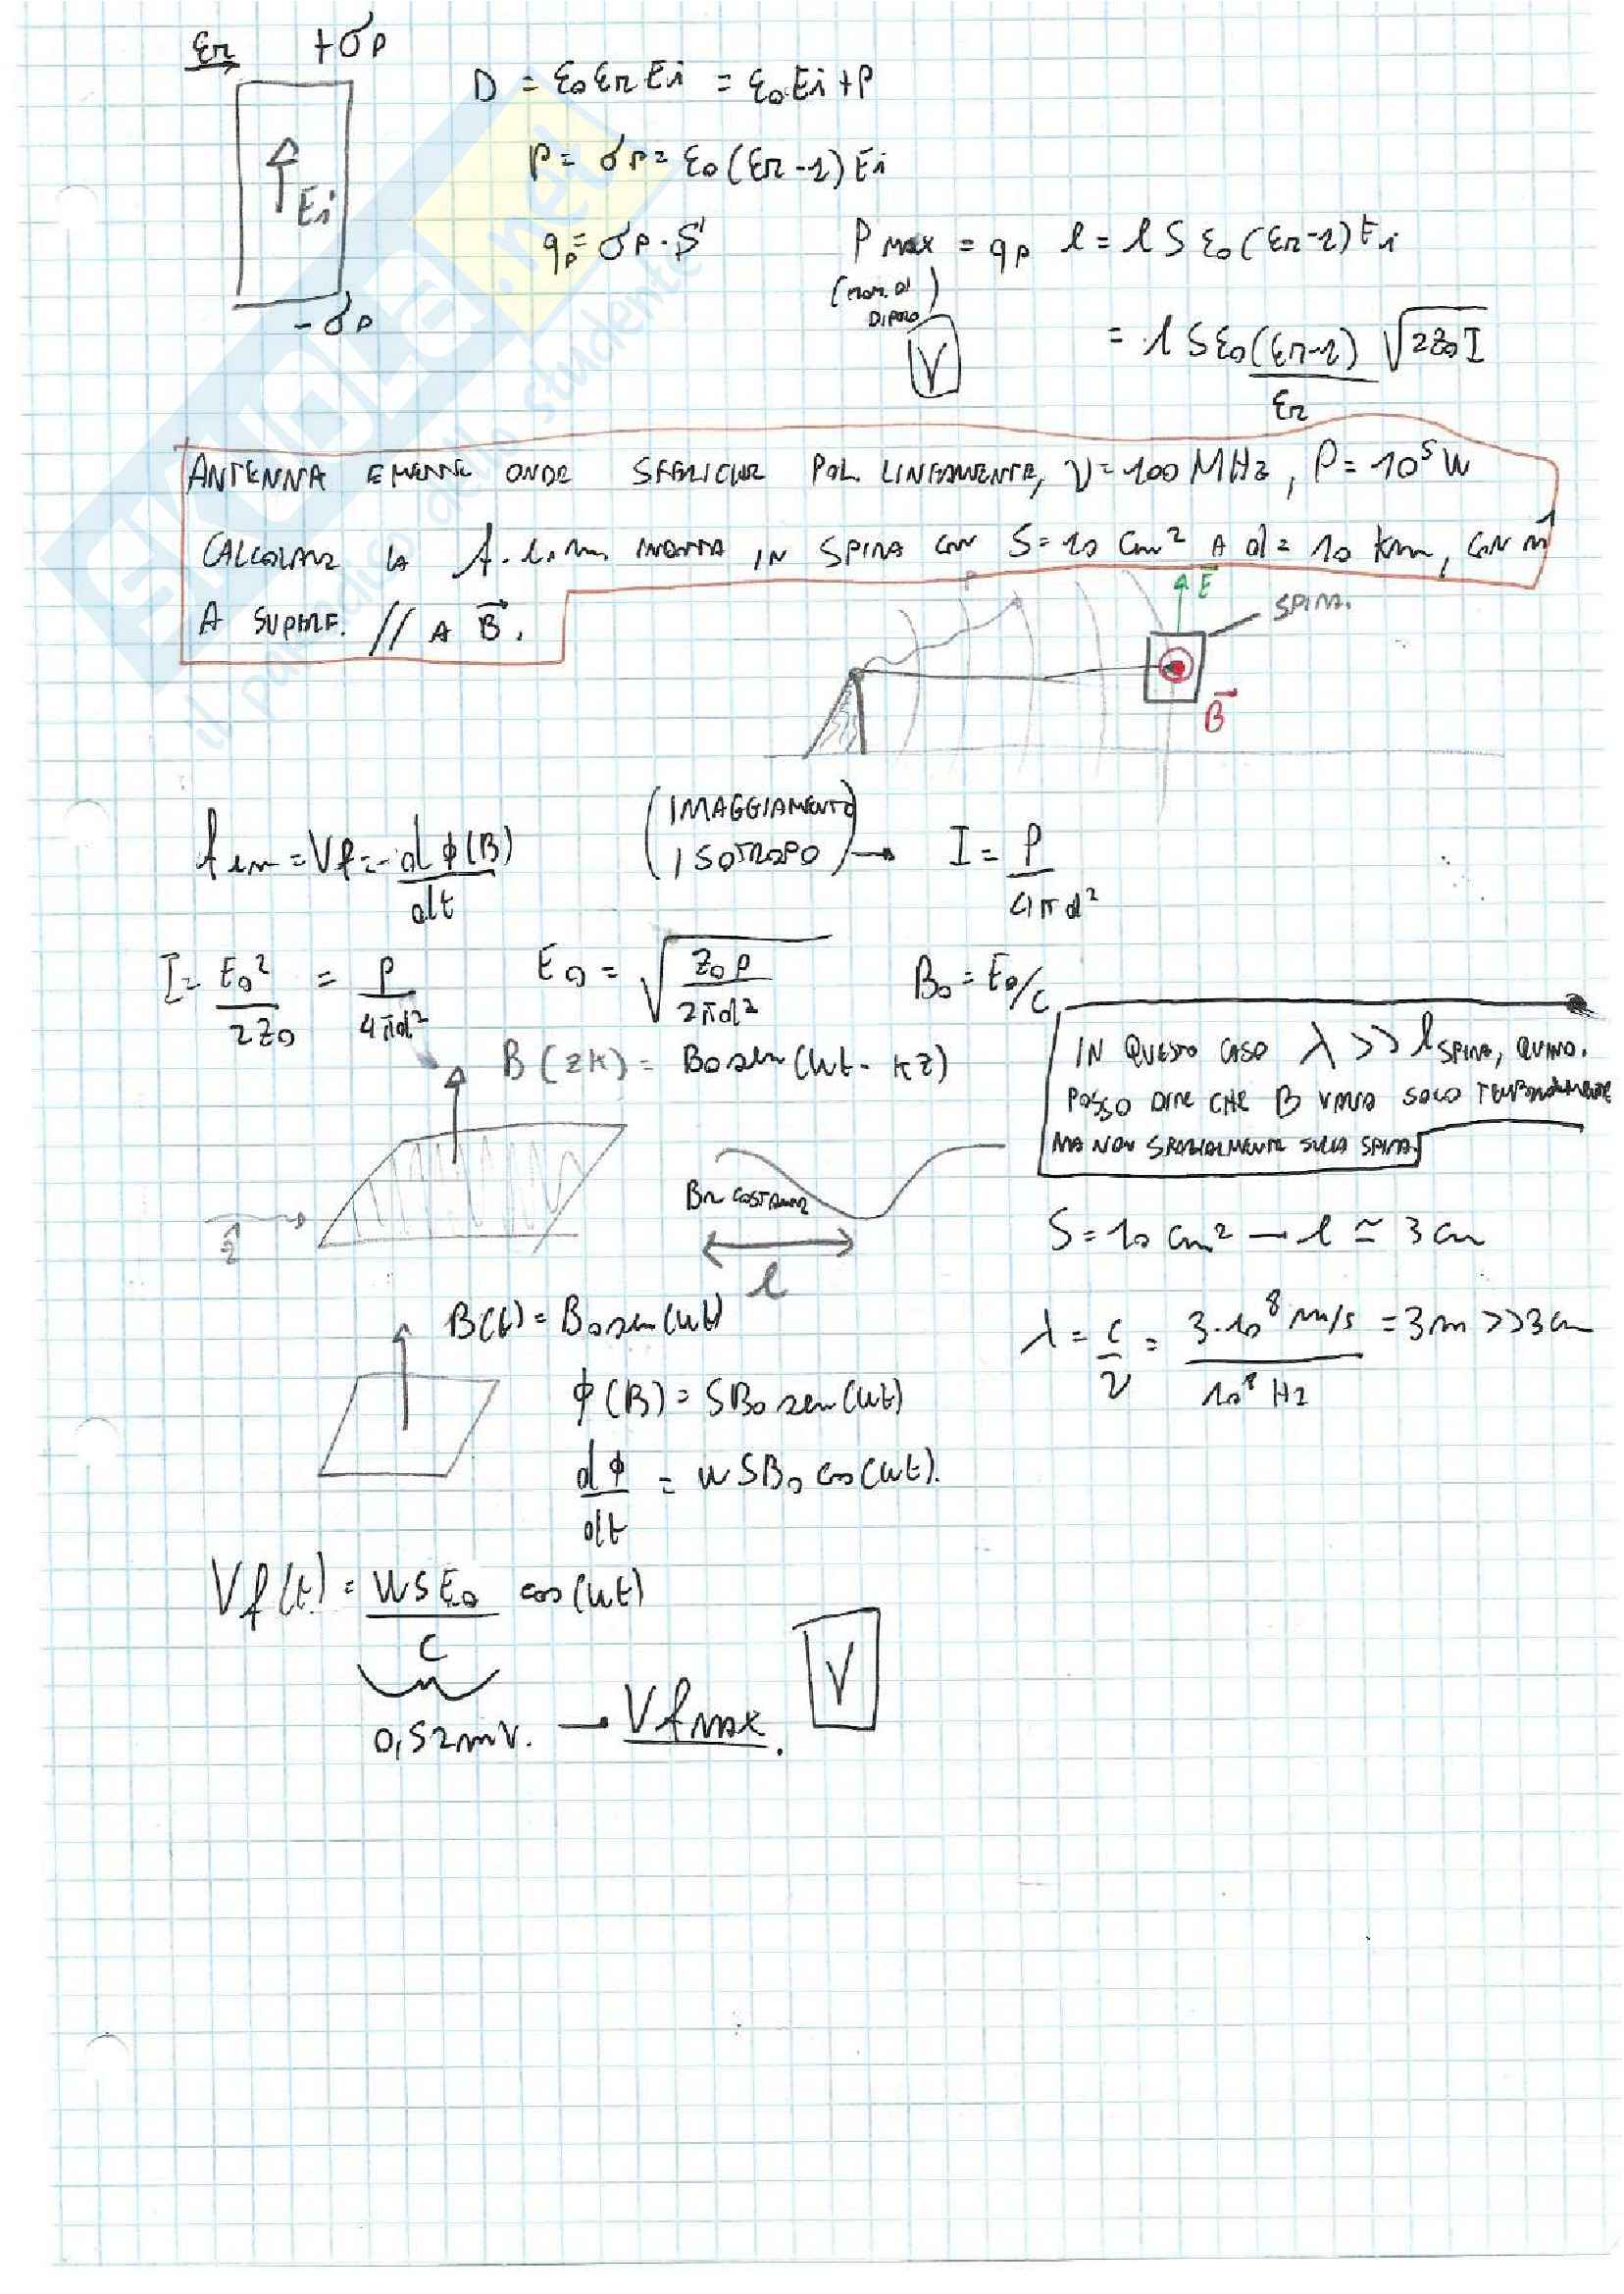 εr +σp
D = ε0 εr Ei = ε0 Ei + P
P = σp = ε0 (εr - 1) Ei
Ei
qp = σp · S
P MAX = qp l = l S ε0 (εr - 1) Ei
(MOM. DI DIPOLO)
- σp
V
= l S ε0 (εr - 1) / εr √2Z0 I
ANTENNA EMETTE ONDE SFERICHE POL. LINEARMENTE, ν = 100 MHz, P = 10^5 W
CALCOLARE LA f.e.m. INDOTTA IN SPIRA CON S = 10 cm² A d = 10 km, CON n
A SUPERF. // A B.
E
SPIRA.
B
fem = Vf = - dϕ(B)/dt
(IRRAGGIAMENTO ISOTROPO) → I = P / 4πd²
I = E0² / 2Z0 = P / 4πd²
E0 = √ Z0 P / 2πd²
B0 = E0/c
B(zt) = B0 sen(ωt - kz)
IN QUESTO CASO λ >> l SPIRA, QUIND.
POSSO DIRE CHE B VARIA SOLO TEMPORALMENTE
MA NON SPAZIALMENTE SULLA SPIRA
B ~ COSTANTE
z
l
S = 10 cm² → l ≃ 3 cm
B(t) = B0 sen(ωt)
λ = c/ν = 3·10^8 m/s / 10^8 Hz = 3m >> 3cm
ϕ(B) = S B0 sen(ωt)
dϕ/dt = ω S B0 cos(ωt).
Vf(t) = ω S E0 / c cos(ωt)
0,52 mV. → Vf MAX.
V
SKUOLA.net
il paradiso dello studente